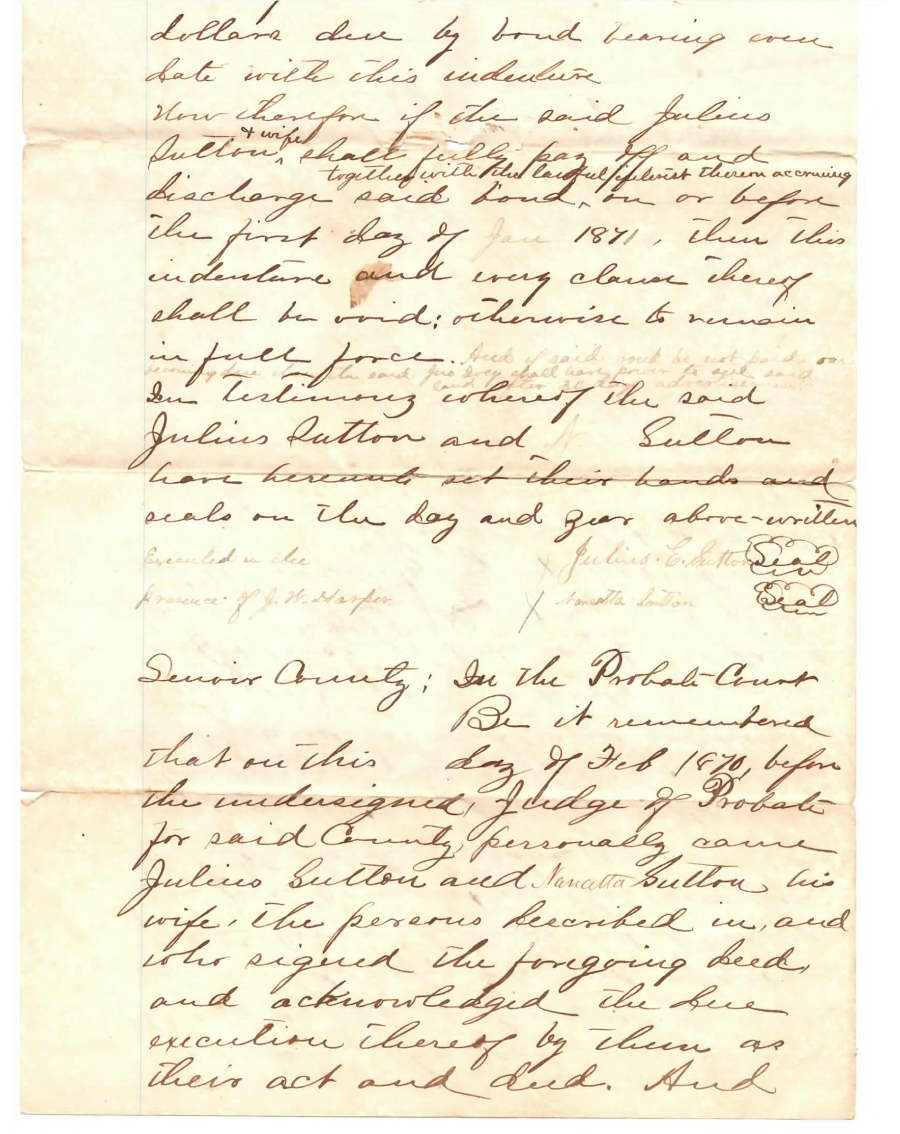 dollars due by bond bearing even
date with this indenture
Now therefore if the said Julius
& wife
Sutton, shall fully pay off and
together with the lawful interest thereon accruing
discharge said bond, on or before
the first day of Jan 1871, then this
indenture and every clause thereof
shall be void; otherwise to remain
in full force. And if said note be not paid on
becoming due then the said Jno Ivey shall have power to sell said
land after 30 days advertisement
In testimony whereof the said
Julius Sutton and N Sutton
have hereunto set their hands and
seals on the day and year above-written
Executed in the x Julius. E. Sutton Seal
presence of J. W. Harper x Nanatta Sutton Seal
Lenoir County; In the Probate Court
Be it remembered
that on this day of Feb 1870, before
the undersigned, Judge of Probate
for said County, personally came
Julius Sutton and Nanatta Sutton his
wife, the persons described in, and
who signed the foregoing deed,
and acknowledged the due
execution thereof by them as
their act and deed. And